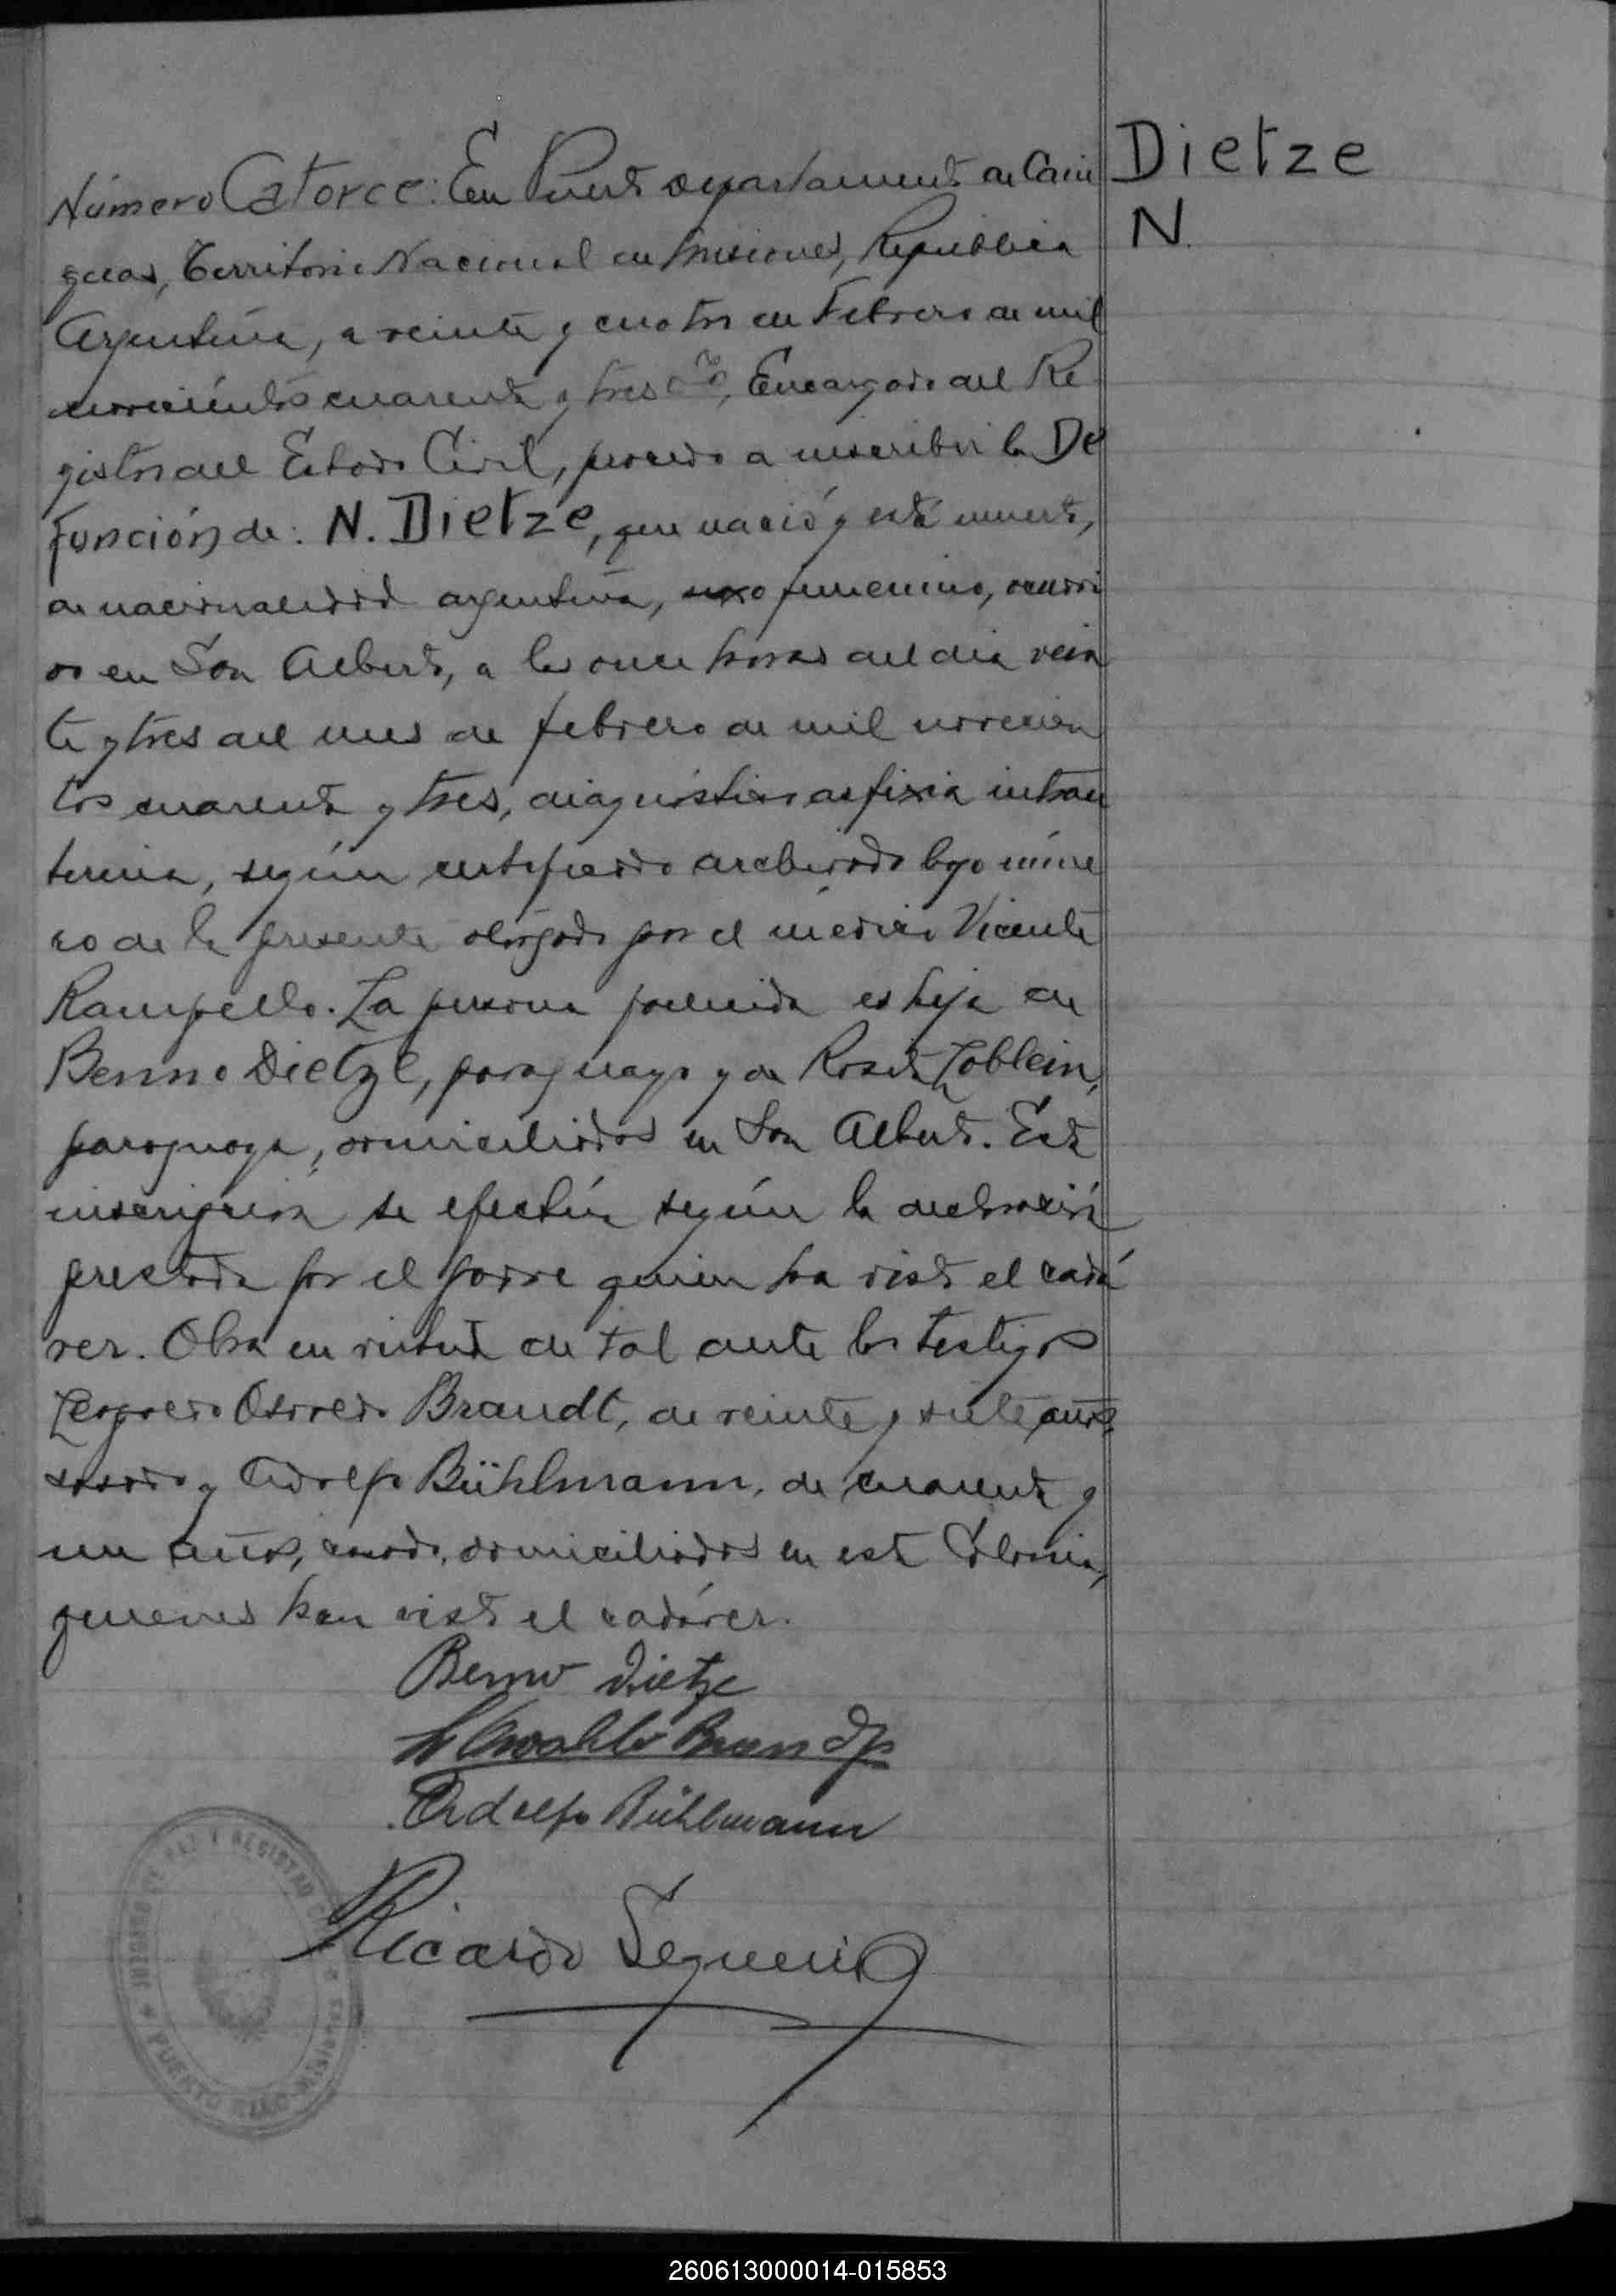 Dietze
N.
Número Catorce: En Puerto departamento de Cain
guas, Territorio Nacional de Misiones, República
Argentina, a veinte y cuatro de Febrero de mil
novecientos cuarenta y tres, Encargado del Re
gistro del Estado Civil, procedo a inscribir la De
función de: N. Dietze, que nació y está muerta,
de nacionalidad argentina, sexo femenino, ocurri
da en San Alberto, a las once horas del día vein
te y tres del mes de febrero de mil novecien
tos cuarenta y tres, diagnóstico asfixia intrau
terina, según certificado archivado bajo núme
ro de la presente otorgado por el médico Vicente
Rampello. La persona es hija de
Benno Dietze, paraguayo y de Rosita Loblein,
paraguaya, domiciliados en San Alberto. Esta
inscripción se efectúa según la declaración
prestada por el padre quien ha visto el cadá
ver. Obra en virtud de tal ante los testigos
Leopoldo Osvaldo Brandt, de veinte y siete años,
casado y Adolfo Bühlmann, de cuarenta y
un años, casado, domiciliados en esta Colonia,
quienes han visto el cadáver.
Benno Dietze
L Osvaldo Brandt
Adolfo Bühlmann
Ricardo Segueri
JUZGADO DE PAZ Y REGISTRO
PUERTO RICO - MISIONES
260613000014-015853